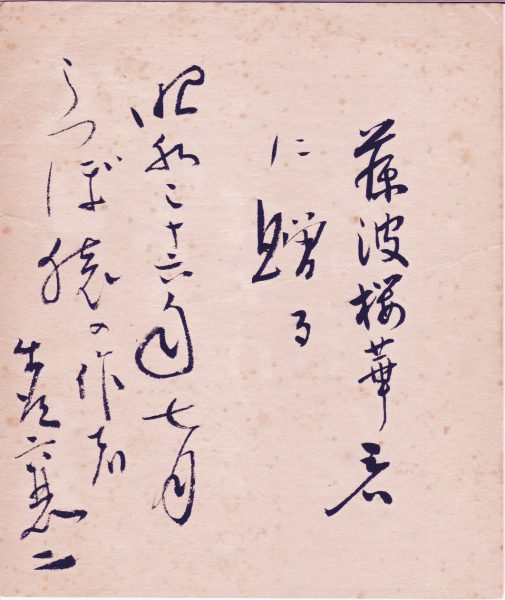 藤波桜華君
に贈る
昭和二十六年七月
うつぼ猿の作者
襄二